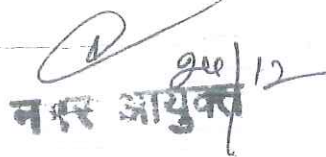 24/12
नगर आयुक्त